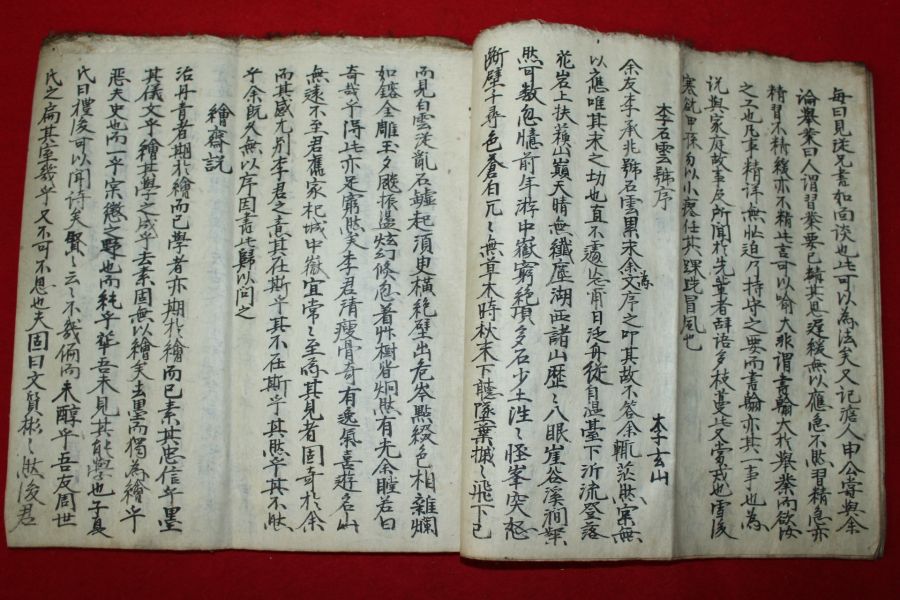 每日見從兄書如面談也此可以為法矣又記澹人申公嘗與余
論舉業曰人謂習業要已精其思遲緩無以應急不然習精急亦
精習不精緩亦不精此言可以喻大非謂書翰大於舉業而欲汝
之工也凡事精詳無忙迫乃持守之要而書翰亦其一事也為
說與家庭故事及所聞於先輩者辭語多枝蔓此不當戒也雪後
寒
李石雲號序 李玄山
余友李承兆號石雲累求余文為序之叩其故不答余輒茫然寀無
以應唯其求之切也直不遽 日泛舟從自溫臺下沂流登落
花岩上扶蘓山巔天晴無纖塵湖西諸山歷〻入眼崖谷溪澗
然可數忽憶前年游中嶽窮絕頂多石少土往〻怪峯突怒
斷壁千尋色蒼白兀〻無草木時秋末下聽墜葉摵〻飛下已
而見白雲從亂石罅起須臾橫絕壁出危岑點綴色相雜爛
如鏤金雕玉夕飈振盪炫幻倏忽著艸樹皆炯然有光余瞠若曰
奇哉乎得此亦足窮然矣李君清瘦骨奇有逸氣喜遊名山
無遠不至君舊家杞城中嶽宜常〻至焉其見者固奇於余
而其感尤別李君之意其在斯乎其不在斯乎其然乎其不然
乎余旣久無以序因書此歸以問之
繪齋說
治丹青者期於繪而已學者亦期於繪而已素其忠信乎墨
其儀文乎繪其學之成乎去素固無以繪矣去墨而獨為繪乎
惡夫史也而一乎寀愨之野也而純乎 吾未見其能與也子夏
氏曰禮後可以聞詩矣賢〻云〻不幾偏而未醇乎吾友周世
氏之扁其室幾乎又不可不思也夫固曰文質彬〻然後君